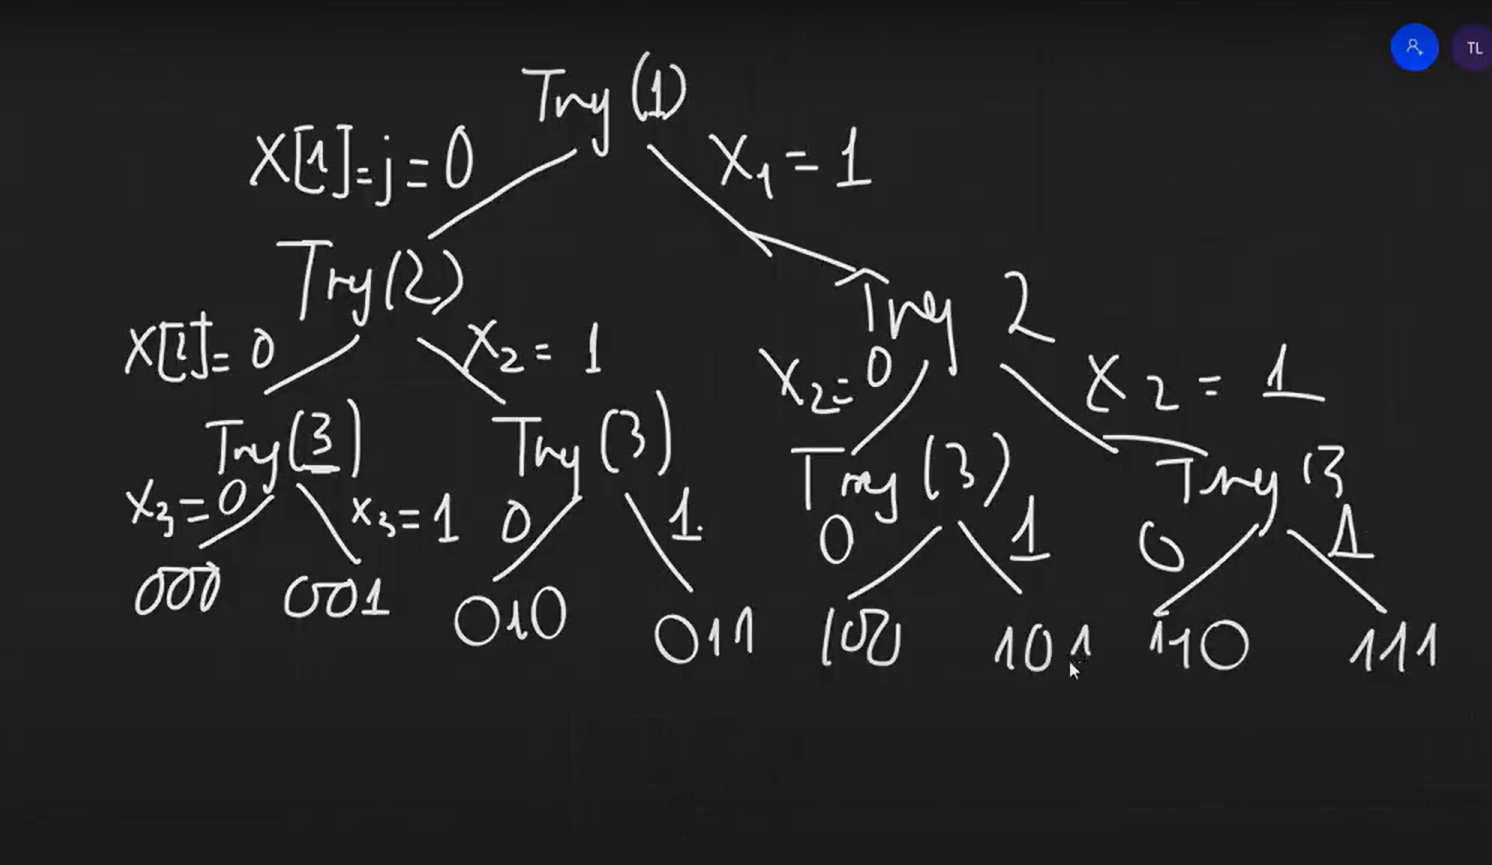 TL
Try (1)
X[1]=j=0 X1 = 1
Try(2) Try 2
X[2]=0 X2 = 1 X2=0 X2 = 1
Try(3) Try (3) Try (3) Try (3
X3=0 X3=1 0 1 0 1 0 1
000 001 010 011 100 101 110 111